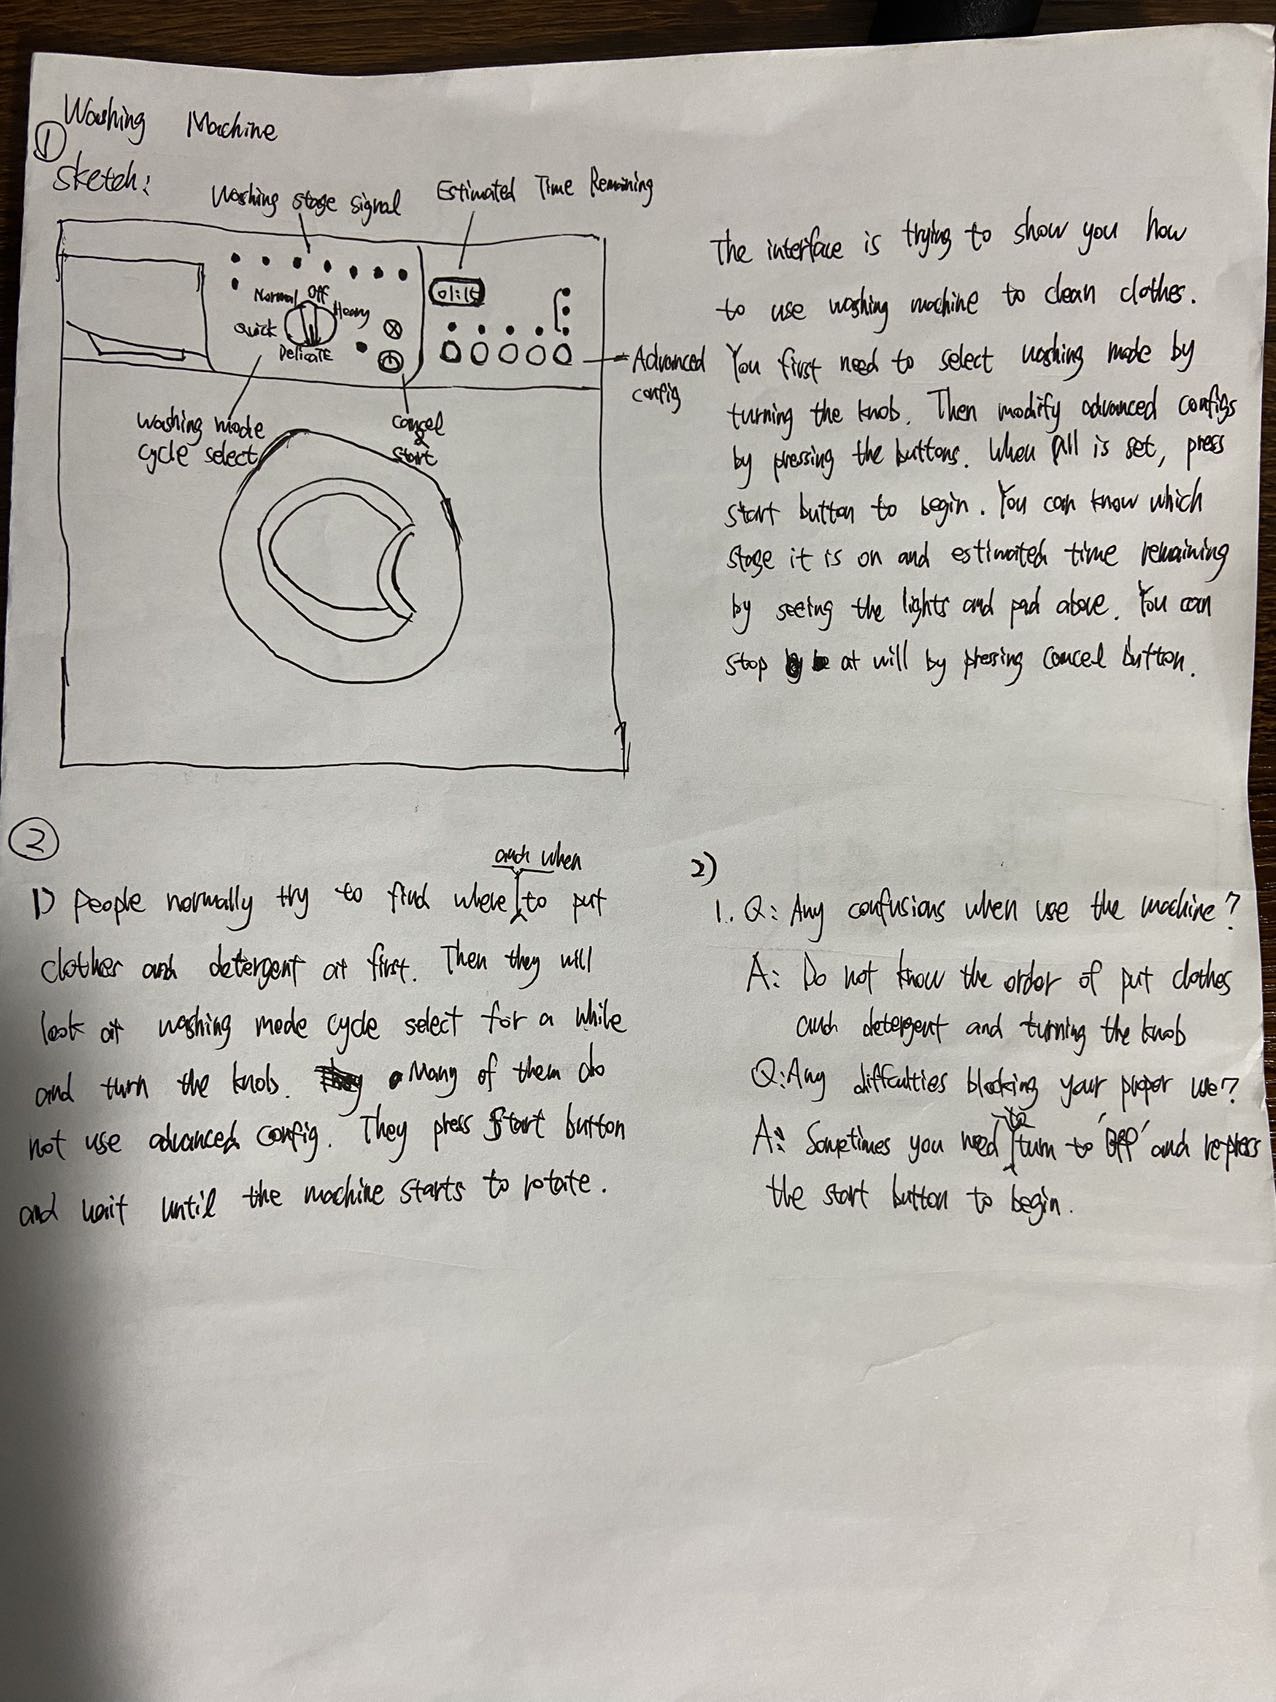 Washing Machine
①
Sketch:
Washing stage signal
Estimated Time Remaining
01:15
Normal Off Heavy
Quick
Delicate
Advanced
config
washing mode
cycle select
cancel
&
start
The interface is trying to show you how
to use washing machine to clean clothes.
You first need to select washing mode by
turning the knob. Then modify advanced configs
by pressing the buttons. When all is set, press
start button to begin. You can know which
stage it is on and estimated time remaining
by seeing the lights and pad above. You can
stop at will by pressing cancel button.
②
1) People normally try to find where and when to put
clothes and detergent at first. Then they will
look at washing mode cycle select for a while
and turn the knob. Many of them do
not use advanced config. They press Start button
and wait until the machine starts to rotate.
2)
1. Q: Any confusions when use the machine?
A: Do not know the order of put clothes
and detergent and turning the knob
Q: Any difficulties blocking your proper use?
A: Sometimes you need to turn to 'Off' and repress
the start button to begin.